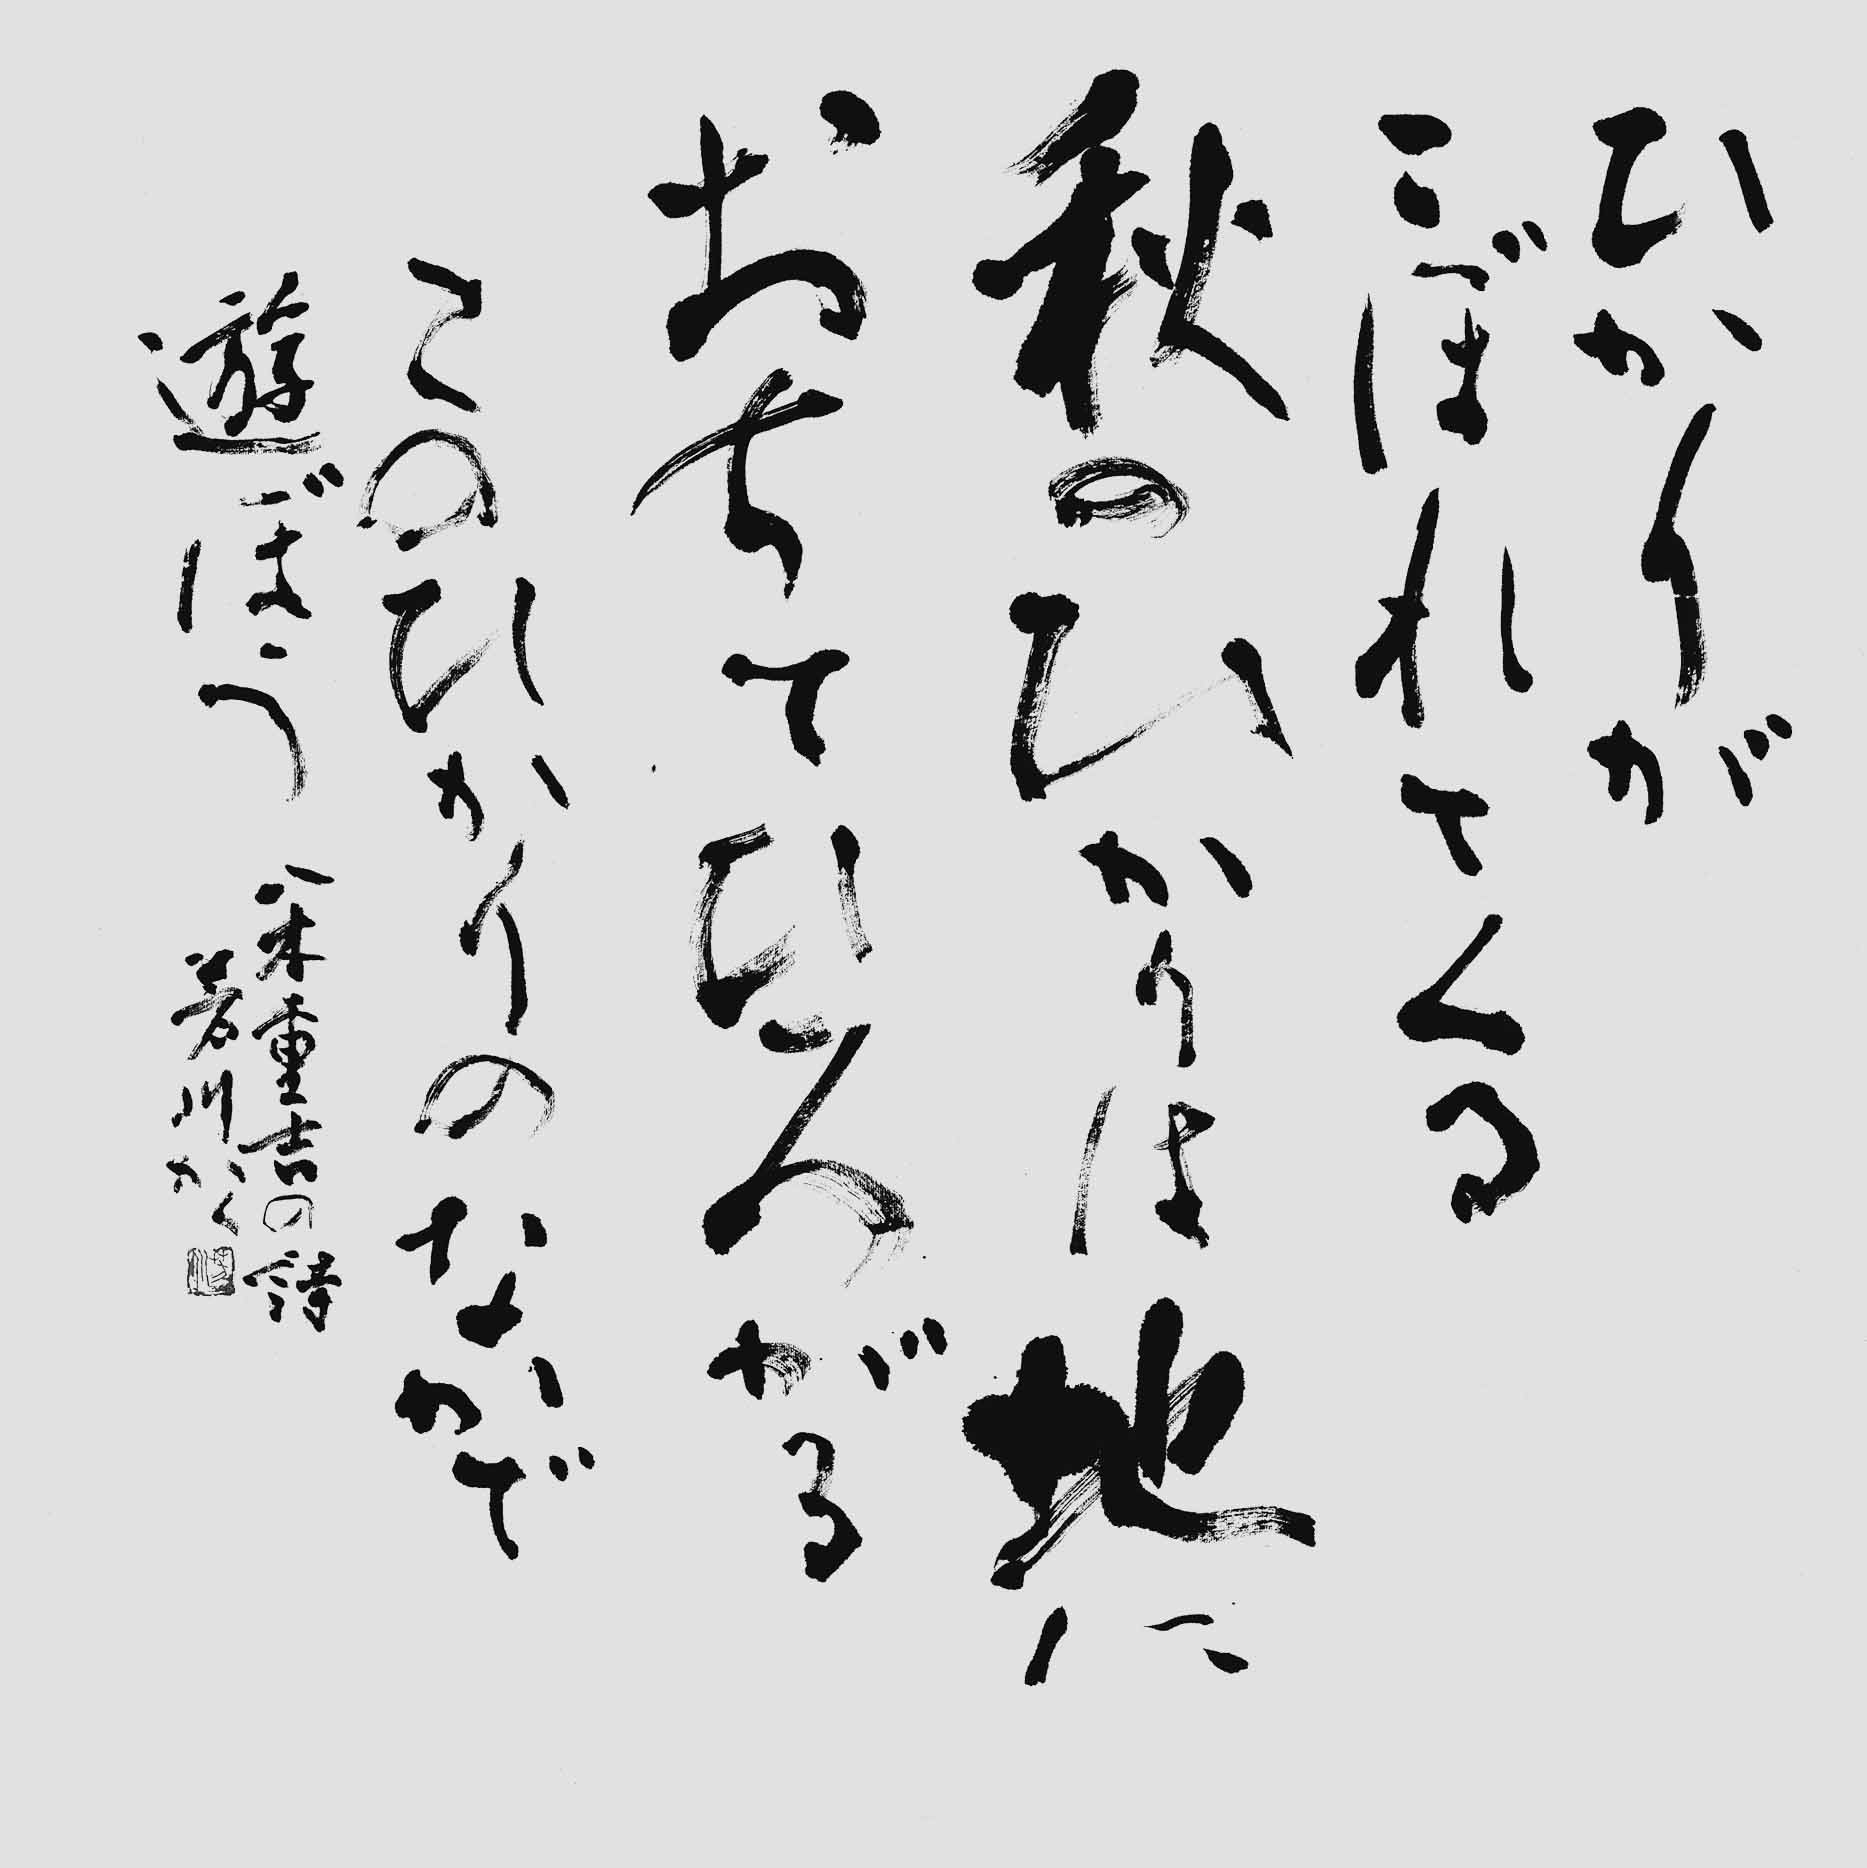 ひかりが
こぼれてくる
秋のひかりは地に
おちてひろがる
このひかりのなかで
遊ぼう
八木重吉の詩
若川かく